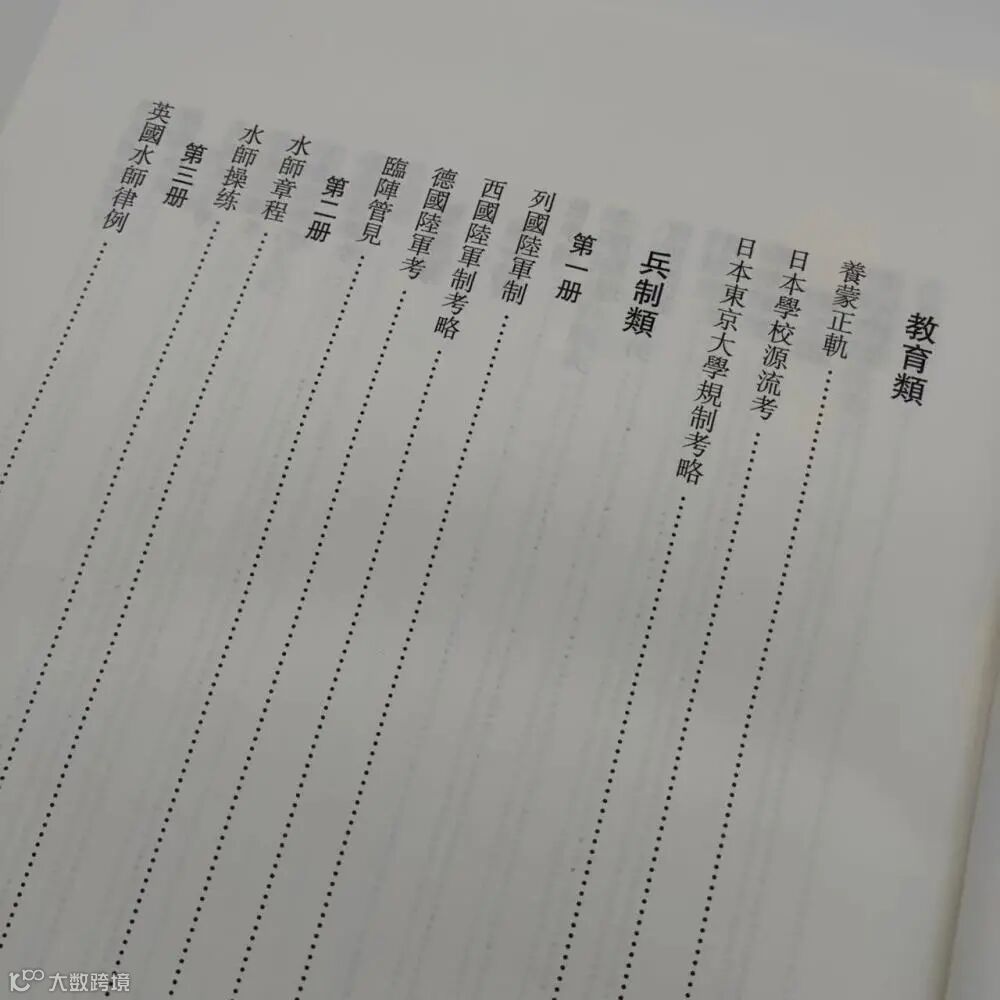 教育類
養蒙正軌
日本學校源流考
日本東京大學規制考略
兵制類
第一册
列國陸軍制
西國陸軍制考略
德國陸軍考
臨陣管見
第二册
水師章程
水師操练
第三册
英國水師律例
大数跨境